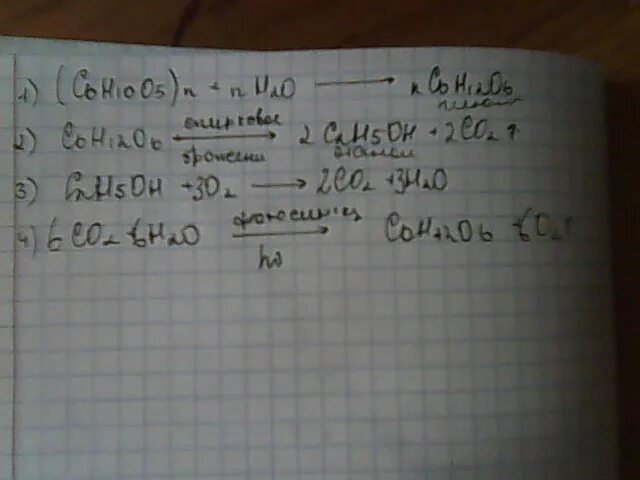 1) (C6H10O5)n + n H2O ⟶ n C6H12O6
2) C6H12O6 спиртовое брожение 2 C2H5OH + 2CO2 ↑
этанол
3) C2H5OH + 3O2 ⟶ 2CO2 + 3H2O
4) 6CO2 + 6H2O фотосинтез C6H12O6 + 6O2 ↑
hν